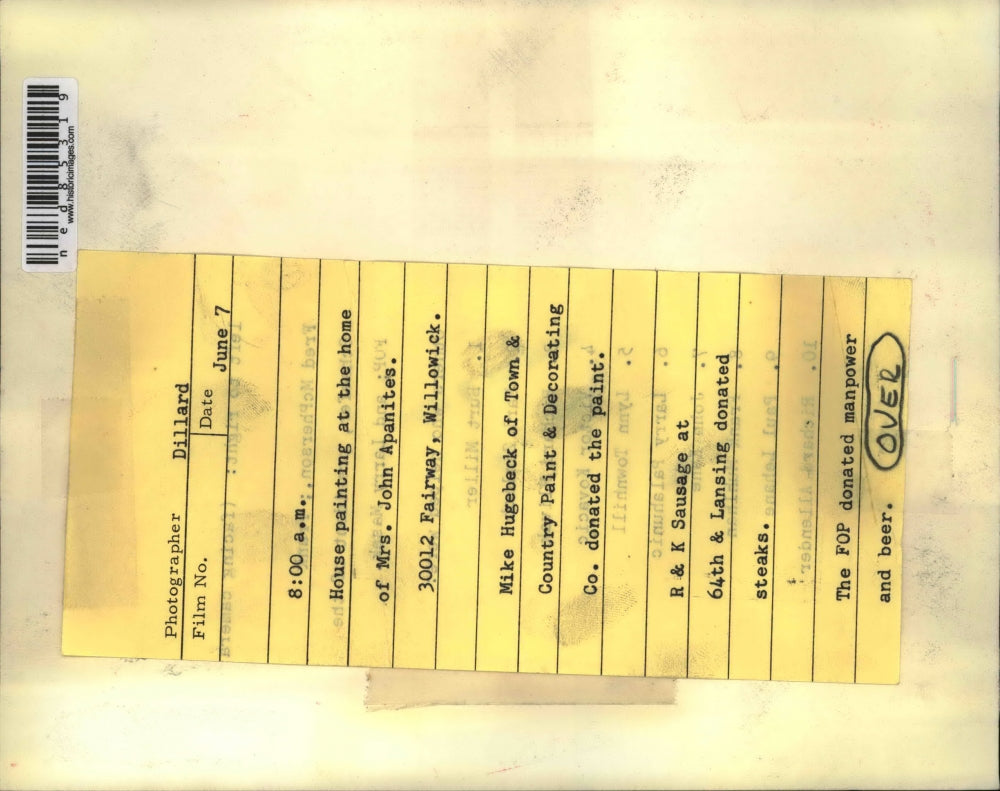 Photographer Dillard
Film No. Date June 7
8:00 a.m.
House painting at the home
of Mrs. John Apanites.
30012 Fairway, Willowick.
Mike Hugebeck of Town &
Country Paint & Decorating
Co. donated the paint.
R & K Sausage at
64th & Lansing donated
steaks.
The FOP donated manpower
and beer. OVER
ned85319
www.historicimages.com